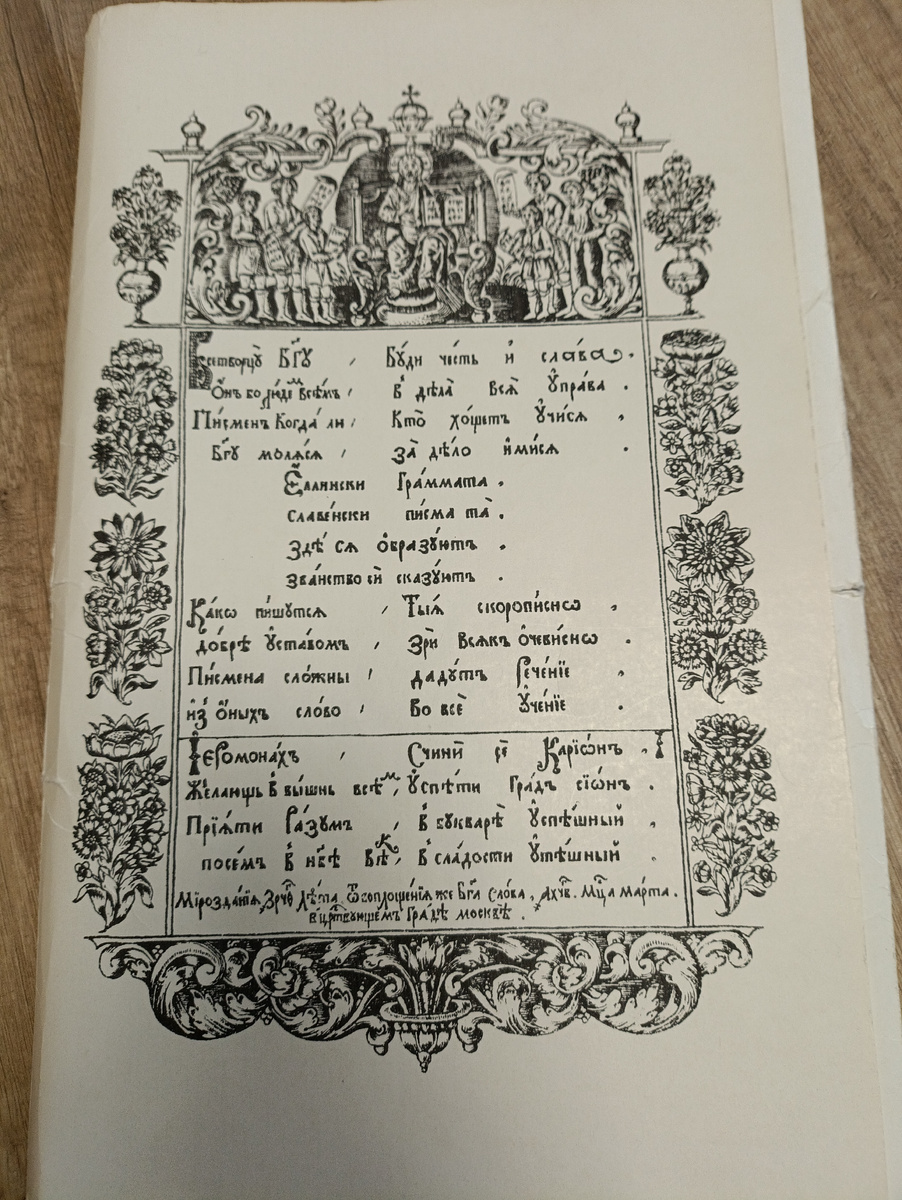 Всетворцꙋ̀ Бг҃ꙋ , Бꙋ́ди че́сть и҆ сла́ва .
Ѻ҆́нъ бо людеⷨ всѣмъ , в̾ дѣла̀ всѧ̑ ᲂу҆пра́ва .
Пи́сменъ когда̀ ли , Кто̀ хо́щетъ ᲂу҆чи́сѧ ,
Бг҃ꙋ молѧ́сѧ , За̀ дѣ́ло и҆ми́сѧ .
Є҆́ллински Гра́ммата ,
славе́нски пи́сма та̀ .
здѣ́ сѧ ѻ҆бразꙋ́ютъ ,
зва́нство сѝ сказꙋ́ютъ .
Ка́кѡ пи́шꙋтсѧ , Ты̑ѧ скоропи́снѡ ,
до́брѣ ᲂу҆ста́вомъ , зрѝ всѧ́къ ѻ҆чеви́снѡ .
Пи́смена сло́жны , даду́тъ Рече́нїе ,
и҆з̾ ѻ҆́ныхъ сло́во , Во всѐ ᲂу҆че́нїе .
І҆еромона́хъ , Счинѝ сѐ Карїѡ́нъ ,
Жела́ющь в̾ вы́шнь всѣⷨ , ᲂу҆спѣ́ти Гра́дъ сїѡ́нъ .
Прїѧ́ти Ра́зумъ , в̾ букварѣ̀ ᲂу҆спѣ́шный ,
посе́мъ в̾ нб҃ѣ вѣⷦ , в̾ сла́дости ᲂу҆тѣ́шный .
Мїрозда́нїѧ , ЗРЧ҃В лѣ́та , Ѿ воплоще́нїѧ же Бг҃а Сло́ва , АХЧ҃В . Мц҃а ма́рта .
в̾ ца́рствующемъ Гра́дѣ москвѣ̀ .